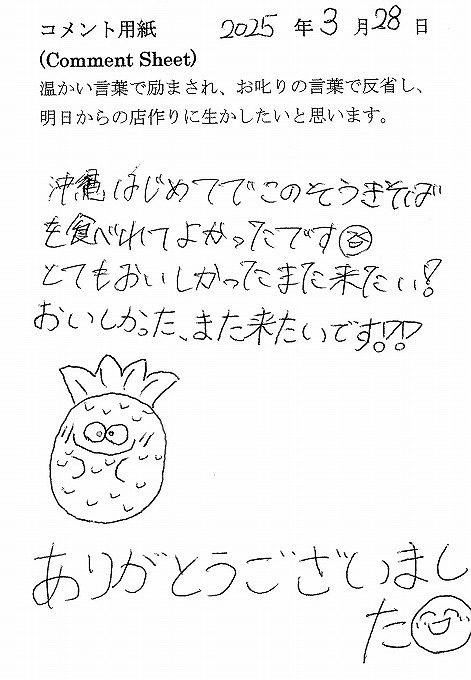 コメント用紙 2025 年 3 月 28 日
(Comment Sheet)
温かい言葉で励まされ、お叱りの言葉で反省し、
明日からの店作りに生かしたいと思います。
沖縄はじめてでこのそうきそば
を食べれてよかったです
とてもおいしかったまた来たい!
おいしかった、また来たいです!?!
ありがとうございまし
た